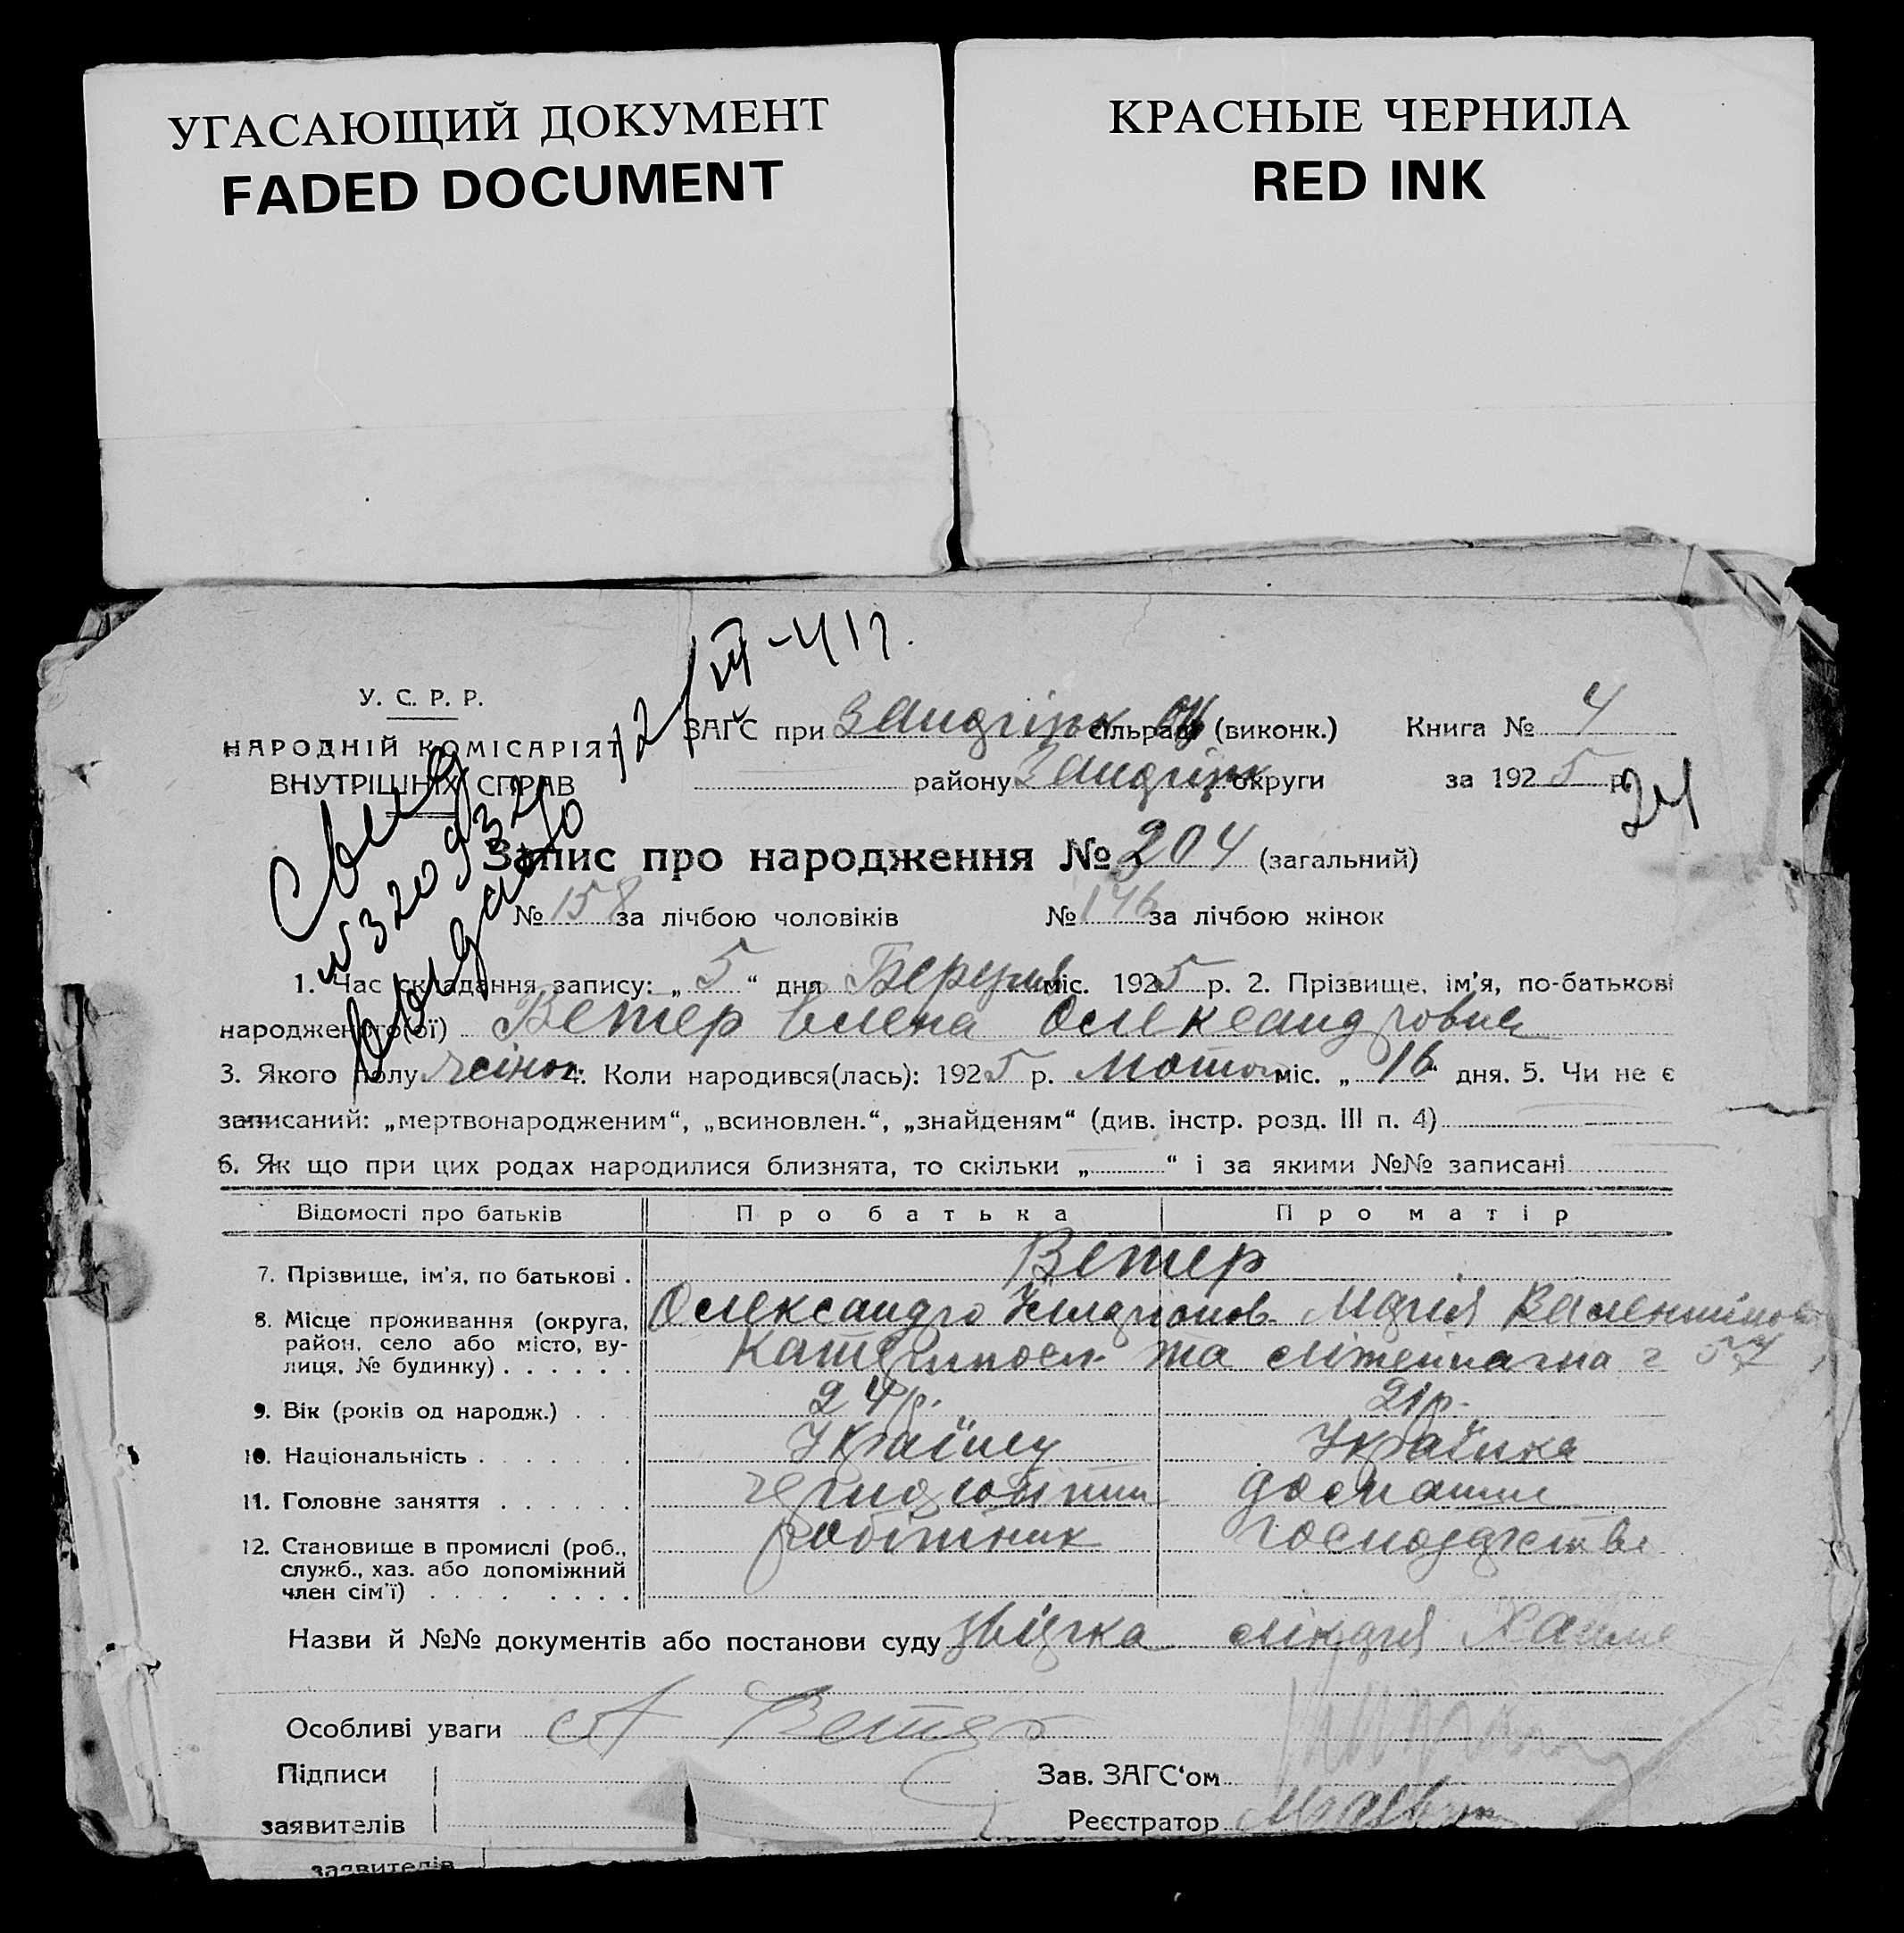 УГАСАЮЩИЙ ДОКУМЕНТ
FADED DOCUMENT
КРАСНЫЕ ЧЕРНИЛА
RED INK
12/VI-41г.
У. С. Р. Р.
НАРОДНІЙ КОМІСАРІЯТ
ВНУТРІШНІХ СПРАВ
ЗАГС при сільраді (виконк.) Книга № 4
району округи за 1925 р.
24
№ 320
Запис про народження № 204 (загальний)
№ 158 за лічбою чоловіків № 146 за лічбою жінок
1. Час складання запису: „5“ дня Березня міс. 1925 р. 2. Прізвище, ім’я, по-батькові
народженого(ої) Ветер Елена Олександровна
3. Якого полу жінок 4. Коли народився(лась): 1925 р. Лютого міс. „16“ дня. 5. Чи не є
записаний: „мертвонародженим“, „всиновлен.“, „знайденям“ (див. інстр. розд. III п. 4)
6. Як що при цих родах народилися близнята, то скільки „ “ і за якими №№ записані
Відомості про батьків Про батька Про матір
7. Прізвище, ім’я, по батькові . Ветер
8. Місце проживання (округа, район, село або місто, вулиця, № будинку) . . . . . .
Олександр Марія Валентинов
та 57
9. Вік (років од народж.) . . . 24 р. 21 р.
10. Національність . . . . . . . Українец Українка
11. Головне заняття . . . . . . домашнє
12. Становище в промислі (роб., служб., хаз. або допоміжний член сім’ї) . . . . . . . .
робітник господарство
Назви й №№ документів або постанови суду звідка лікаря
Особливі уваги А Ветер
Підписи Зав. ЗАГС‘ом
заявителів Реєстратор
заявителів